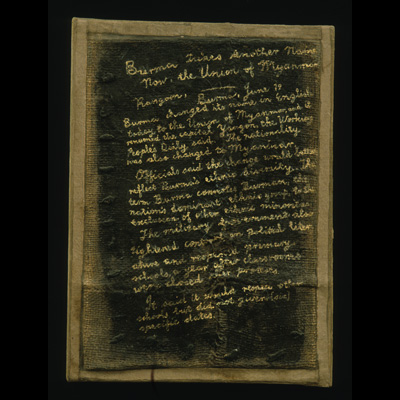 Burma Takes Another Name
Now, the Union of Myanmar
Rangoon, Burma, June 19
Burma changed its name in English
today to the Union of Myanmar, and it
renamed the capital Yangon, the Working
People's Daily said. The nationality
was also changed to Myanmar.
Officials said the change would better
reflect Burma's ethnic diversity. The
term Burma connotes Burman, the
nation's dominant ethnic group, to the
exclusion of other ethnic minorities.
The military Government also
tightened control on political liter
ature and reopened primary
schools, a year after classrooms
were closed over protests.
It said it would reopen other
schools but did not give
specific dates.